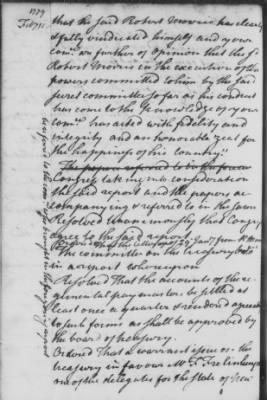 1779
Feb 11.
that the said Robert Morris has clearly
& fully vindicated himself and your
com.ee are further of opinion that the sd
Robert Morris in the execution of the
powers committed to him by the said
secret committee so far as his conduct
has come to the knowledge of your
com.ee has acted with fidelity and
integrity and an honorable zeal for
the happiness of his country."
The papers referred to in the foreg
Congress taking into consideration
the said report and the papers ac
companying & referred to in the same
Resolved Unanimously that Congress
agree to the said report
The committee on the treasury
in a report whereupon
Resolved That the accounts of the re
gimental paymasters be settled at
least once a quarter & rendered agreeable
to such forms as shall be approved by
the board of treasury.
Ordered That a warrant issue on the
treasury in favour of Mr F. Frelinghuysen
one of the delegates for the state of New